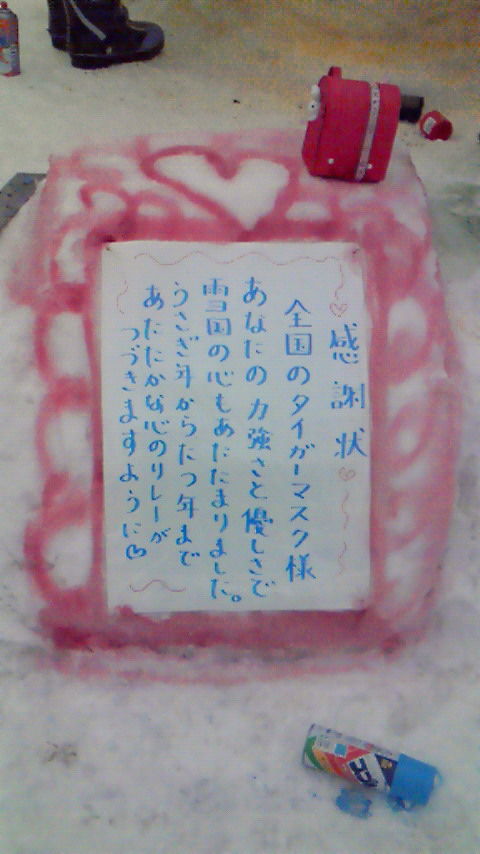 感謝状
全国のタイガーマスク様
あなたの力強さと優しさで
雪国の心もあたたまりました。
うさぎ年からたつ年まで
あたたかな心のリレーが
つづきますように♡